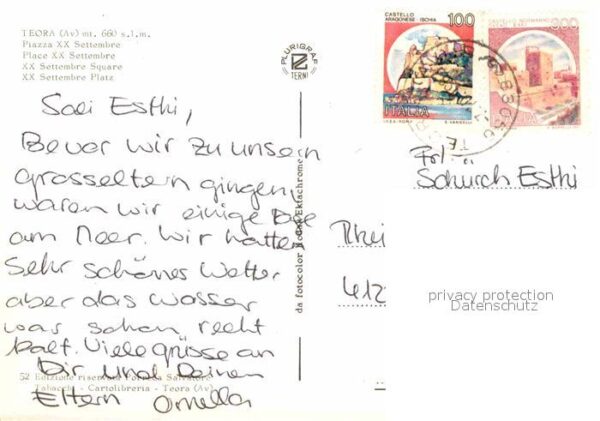 TEORA (Av) mt. 660 s.l.m.
Piazza XX Settembre
Place XX Settembre
XX Settembre Square
XX Settembre Platz
PLURIGRAF
TERNI
CASTELLO
ARAGONESE - ISCHIA
100
ITALIA
300
Esthi,
Bevor wir zu unsern
Grosseltern gingen,
waren wir einige
am Meer. Wir hatten
sehr schönes Wetter
aber das Wasser
war schon recht
kalt. Viele Grüsse an
Dir und Deinen
Eltern Ornella
da fotocolor Kodak Ektachrome
Schürch Esthi
Rhei
412
privacy protection
Datenschutz
52 Edizione riservata Salvatore
Tabacchi - Cartolibreria - Teora (Av)